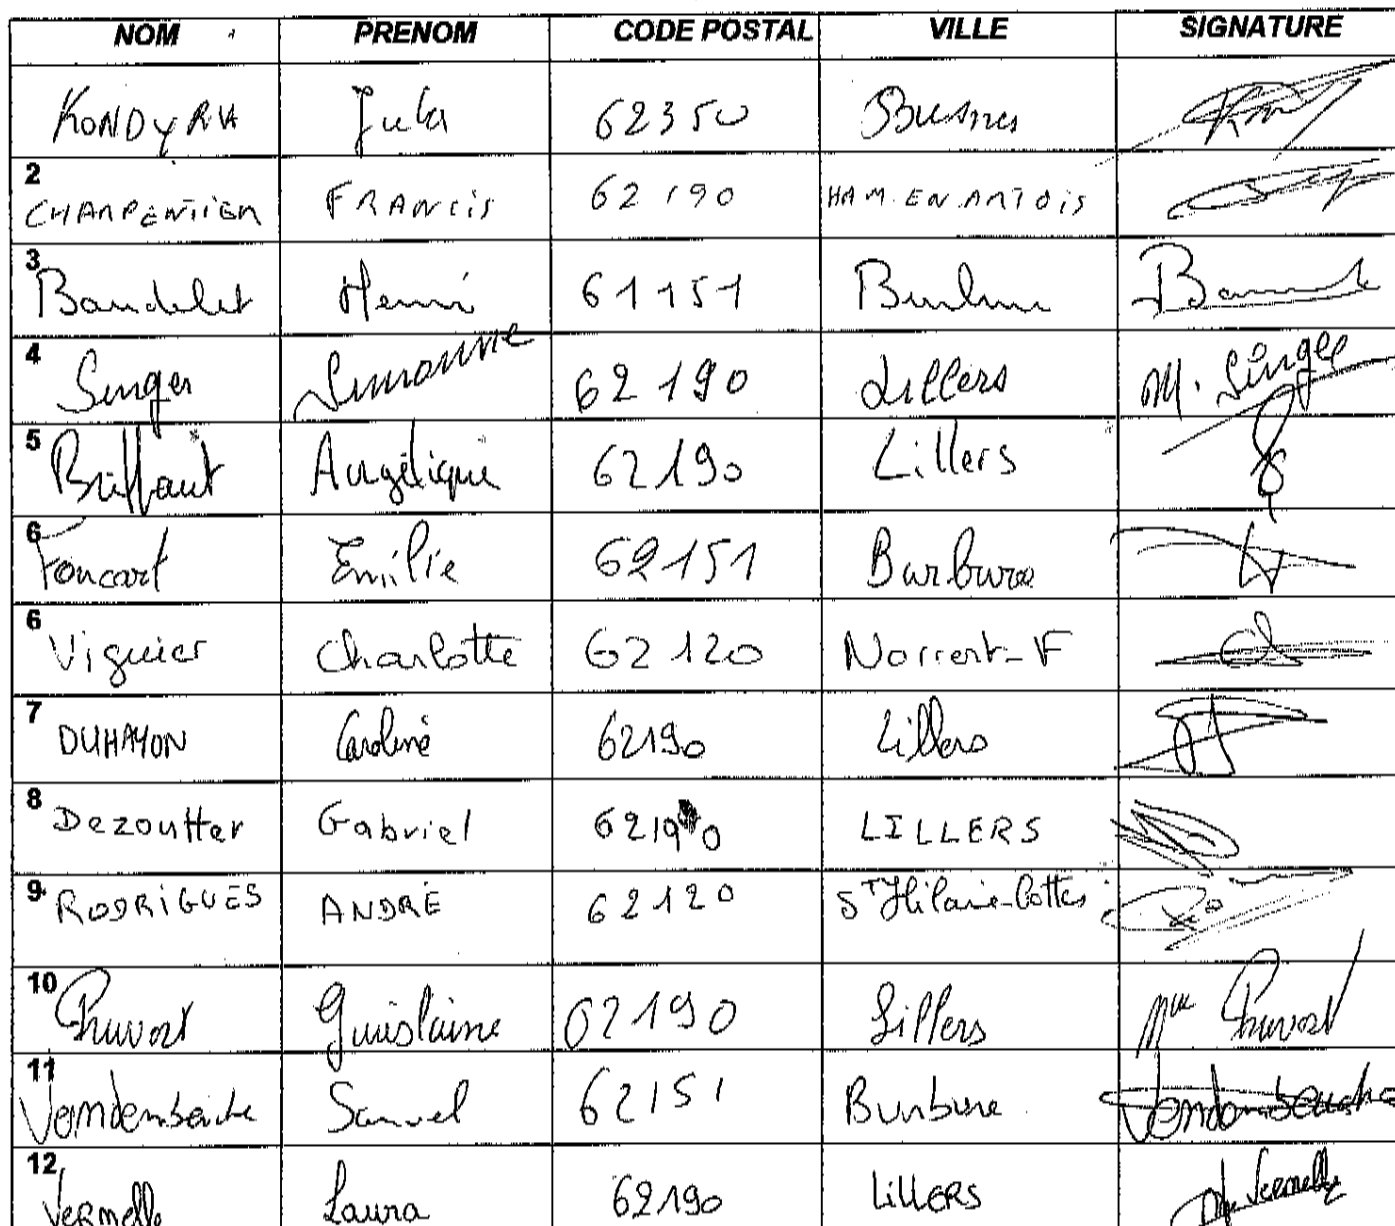 NOM PRENOM CODE POSTAL VILLE SIGNATURE
KONDYRA Jula 62350 Busnes
2 CHARPENTIER FRANCIS 62190 HAM.EN ARTOIS
3 Baudelet Henri 61151 Burbure
4 Singer Simonne 62190 Lillers M. Singer
5 Briffaut Angélique 62190 Lillers
6 Foncart Emilie 62151 Burbure
6 Viguier Charlotte 62120 Norrent-F
7 DUHAYON Caroline 62190 Lillers
8 Dezoutter Gabriel 62190 LILLERS
9 RODRIGUES ANDRÉ 62120 St Hilaire-Cottes
10 Pruvost Guislaine 62190 Lillers Mme Pruvost
11 Samuel 62151 Burbure
12 Vermelle Laura 62190 LILLERS Vermelle